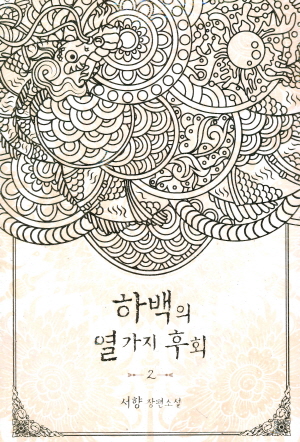 하백의
열 가지 후회
2
서향 장편소설